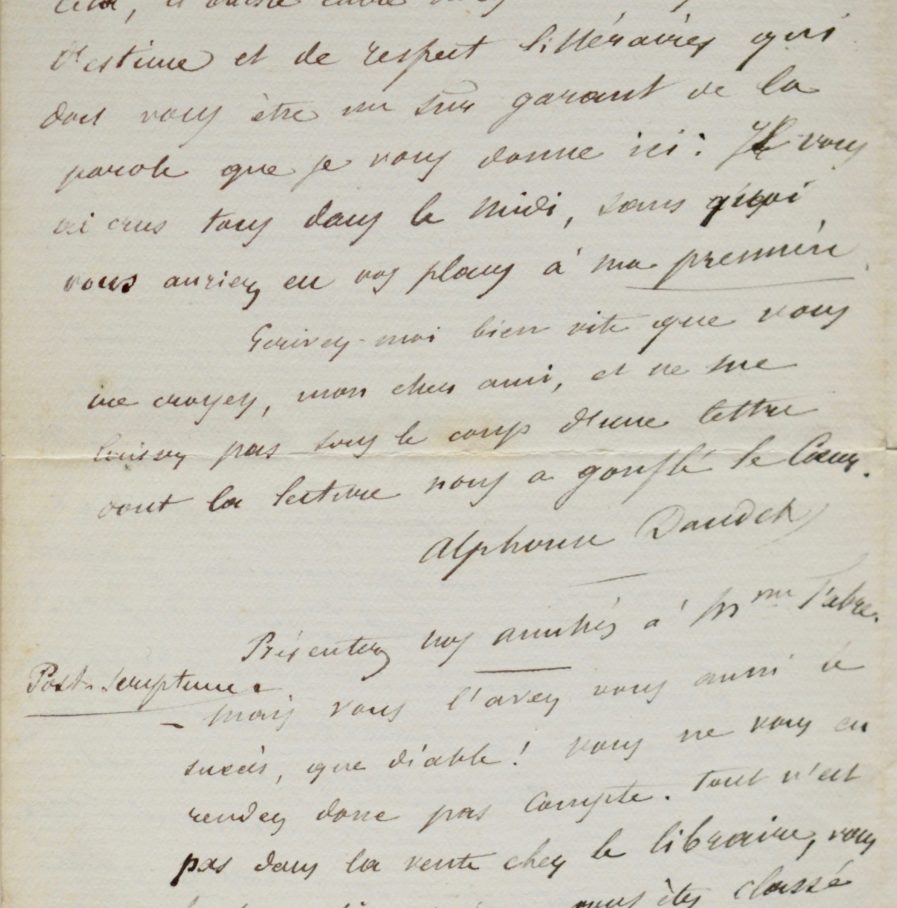 cela, il existe entre nous
d'estime et de respect littéraires qui
doit vous être un sûr garant de la
parole que je vous donne ici : Je vous
ai crus tous dans le Midi, sans quoi
vous auriez eu vos places à ma première.
Ecrivez-moi bien vite que vous
me croyez, mon cher ami, et ne me
laissez pas sous le coup d'une lettre
dont la lecture nous a gonflé le Cœur.
Alphonse Daudet
Présentez nos amitiés à Mme Fabre.
Post-scriptum.
- Mais vous l'avez vous aussi le
succès, que diable ! Vous ne vous en
rendez donc pas compte. Tout n'est
pas dans la vente chez le libraire, vous
vous êtes classé